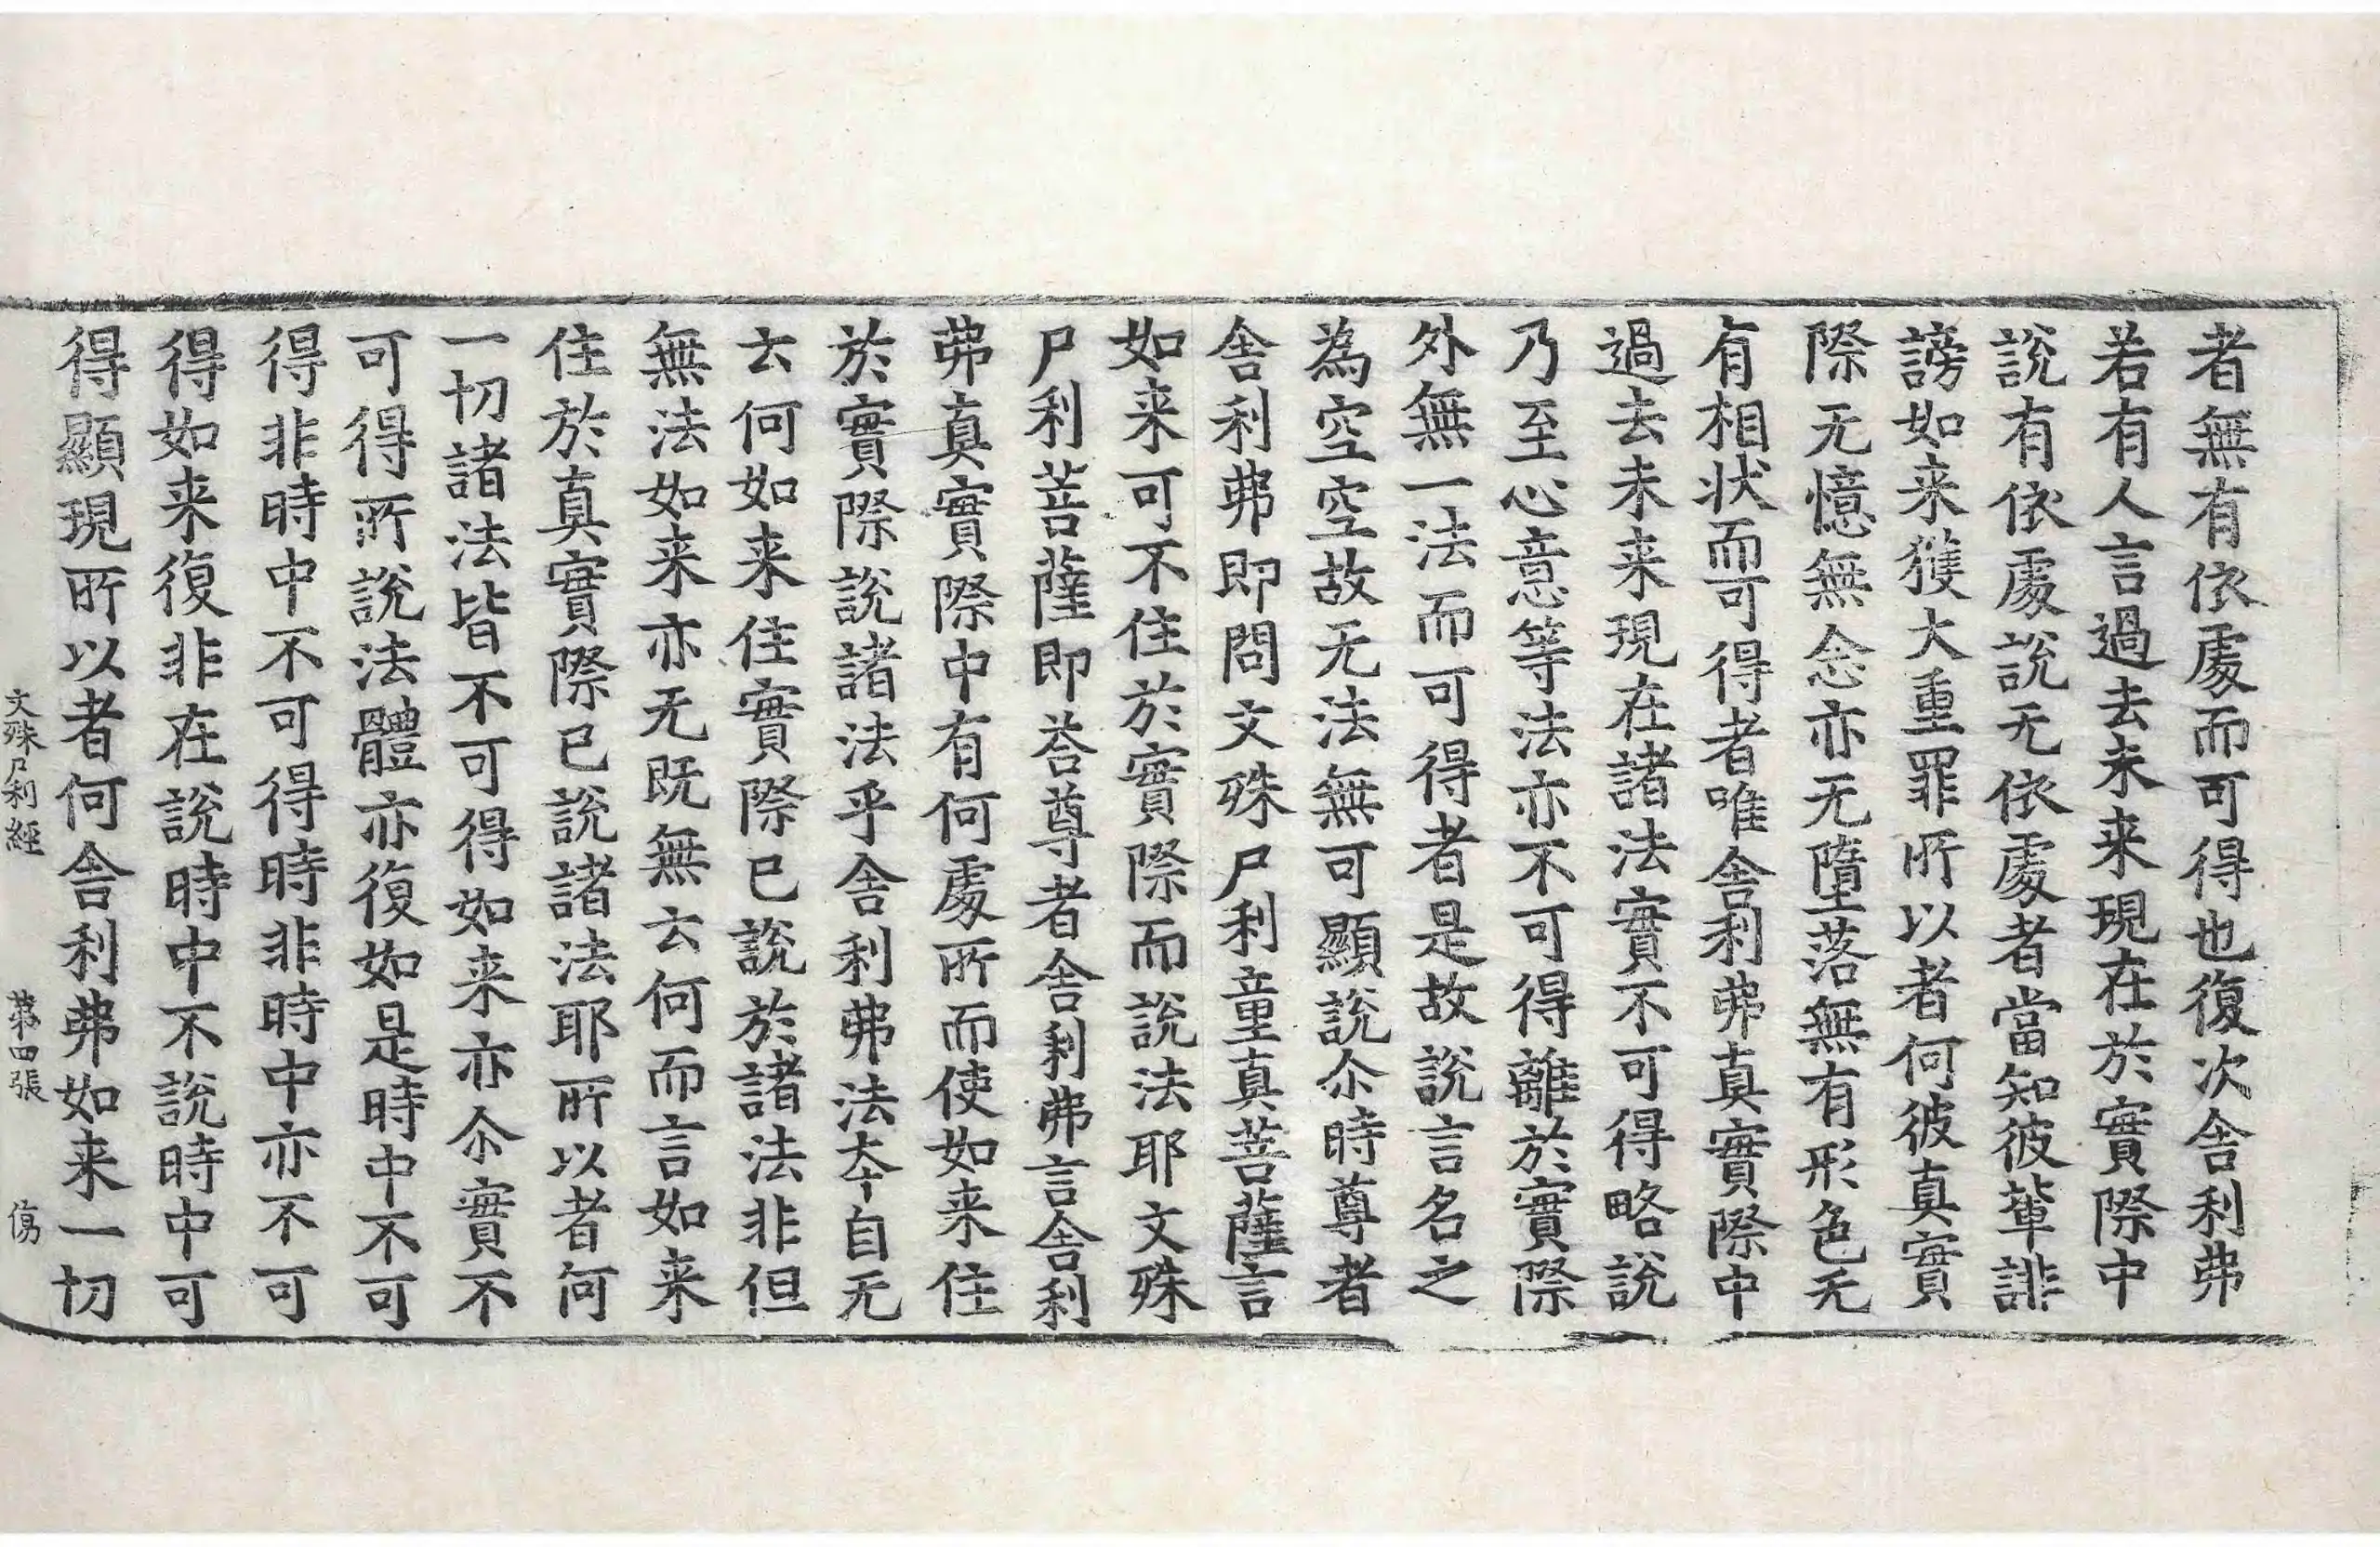 者無有依處而可得也復次舍利弗
若有人言過去未来現在於實際中
說有依處說无依處者當知彼軰誹
謗如来獲大重罪所以者何彼真實
際无憶無念亦无墮落無有形色无
有相状而可得者唯舍利弗真實際中
過去未来現在諸法實不可得略說
乃至心意等法亦不可得離於實際
外無一法而可得者是故說言名之
為空空故无法無可顯說尒時尊者
舍利弗即問文殊尸利童真菩薩言
如来可不住於實際而說法耶文殊
尸利菩薩即荅尊者舍利弗言舍利
弗真實際中有何處所而使如来住
於實際說諸法乎舍利弗法夲自无
云何如来住實際已說於諸法非但
無法如来亦无既無云何而言如来
住於真實際已說諸法耶所以者何
一切諸法皆不可得如来亦尒實不
可得所說法體亦復如是時中不可
得非時中不可得時非時中亦不可
得如来復非在說時中不說時中可
得顯現所以者何舍利弗如来一切
文殊尸利經 第四張 傷